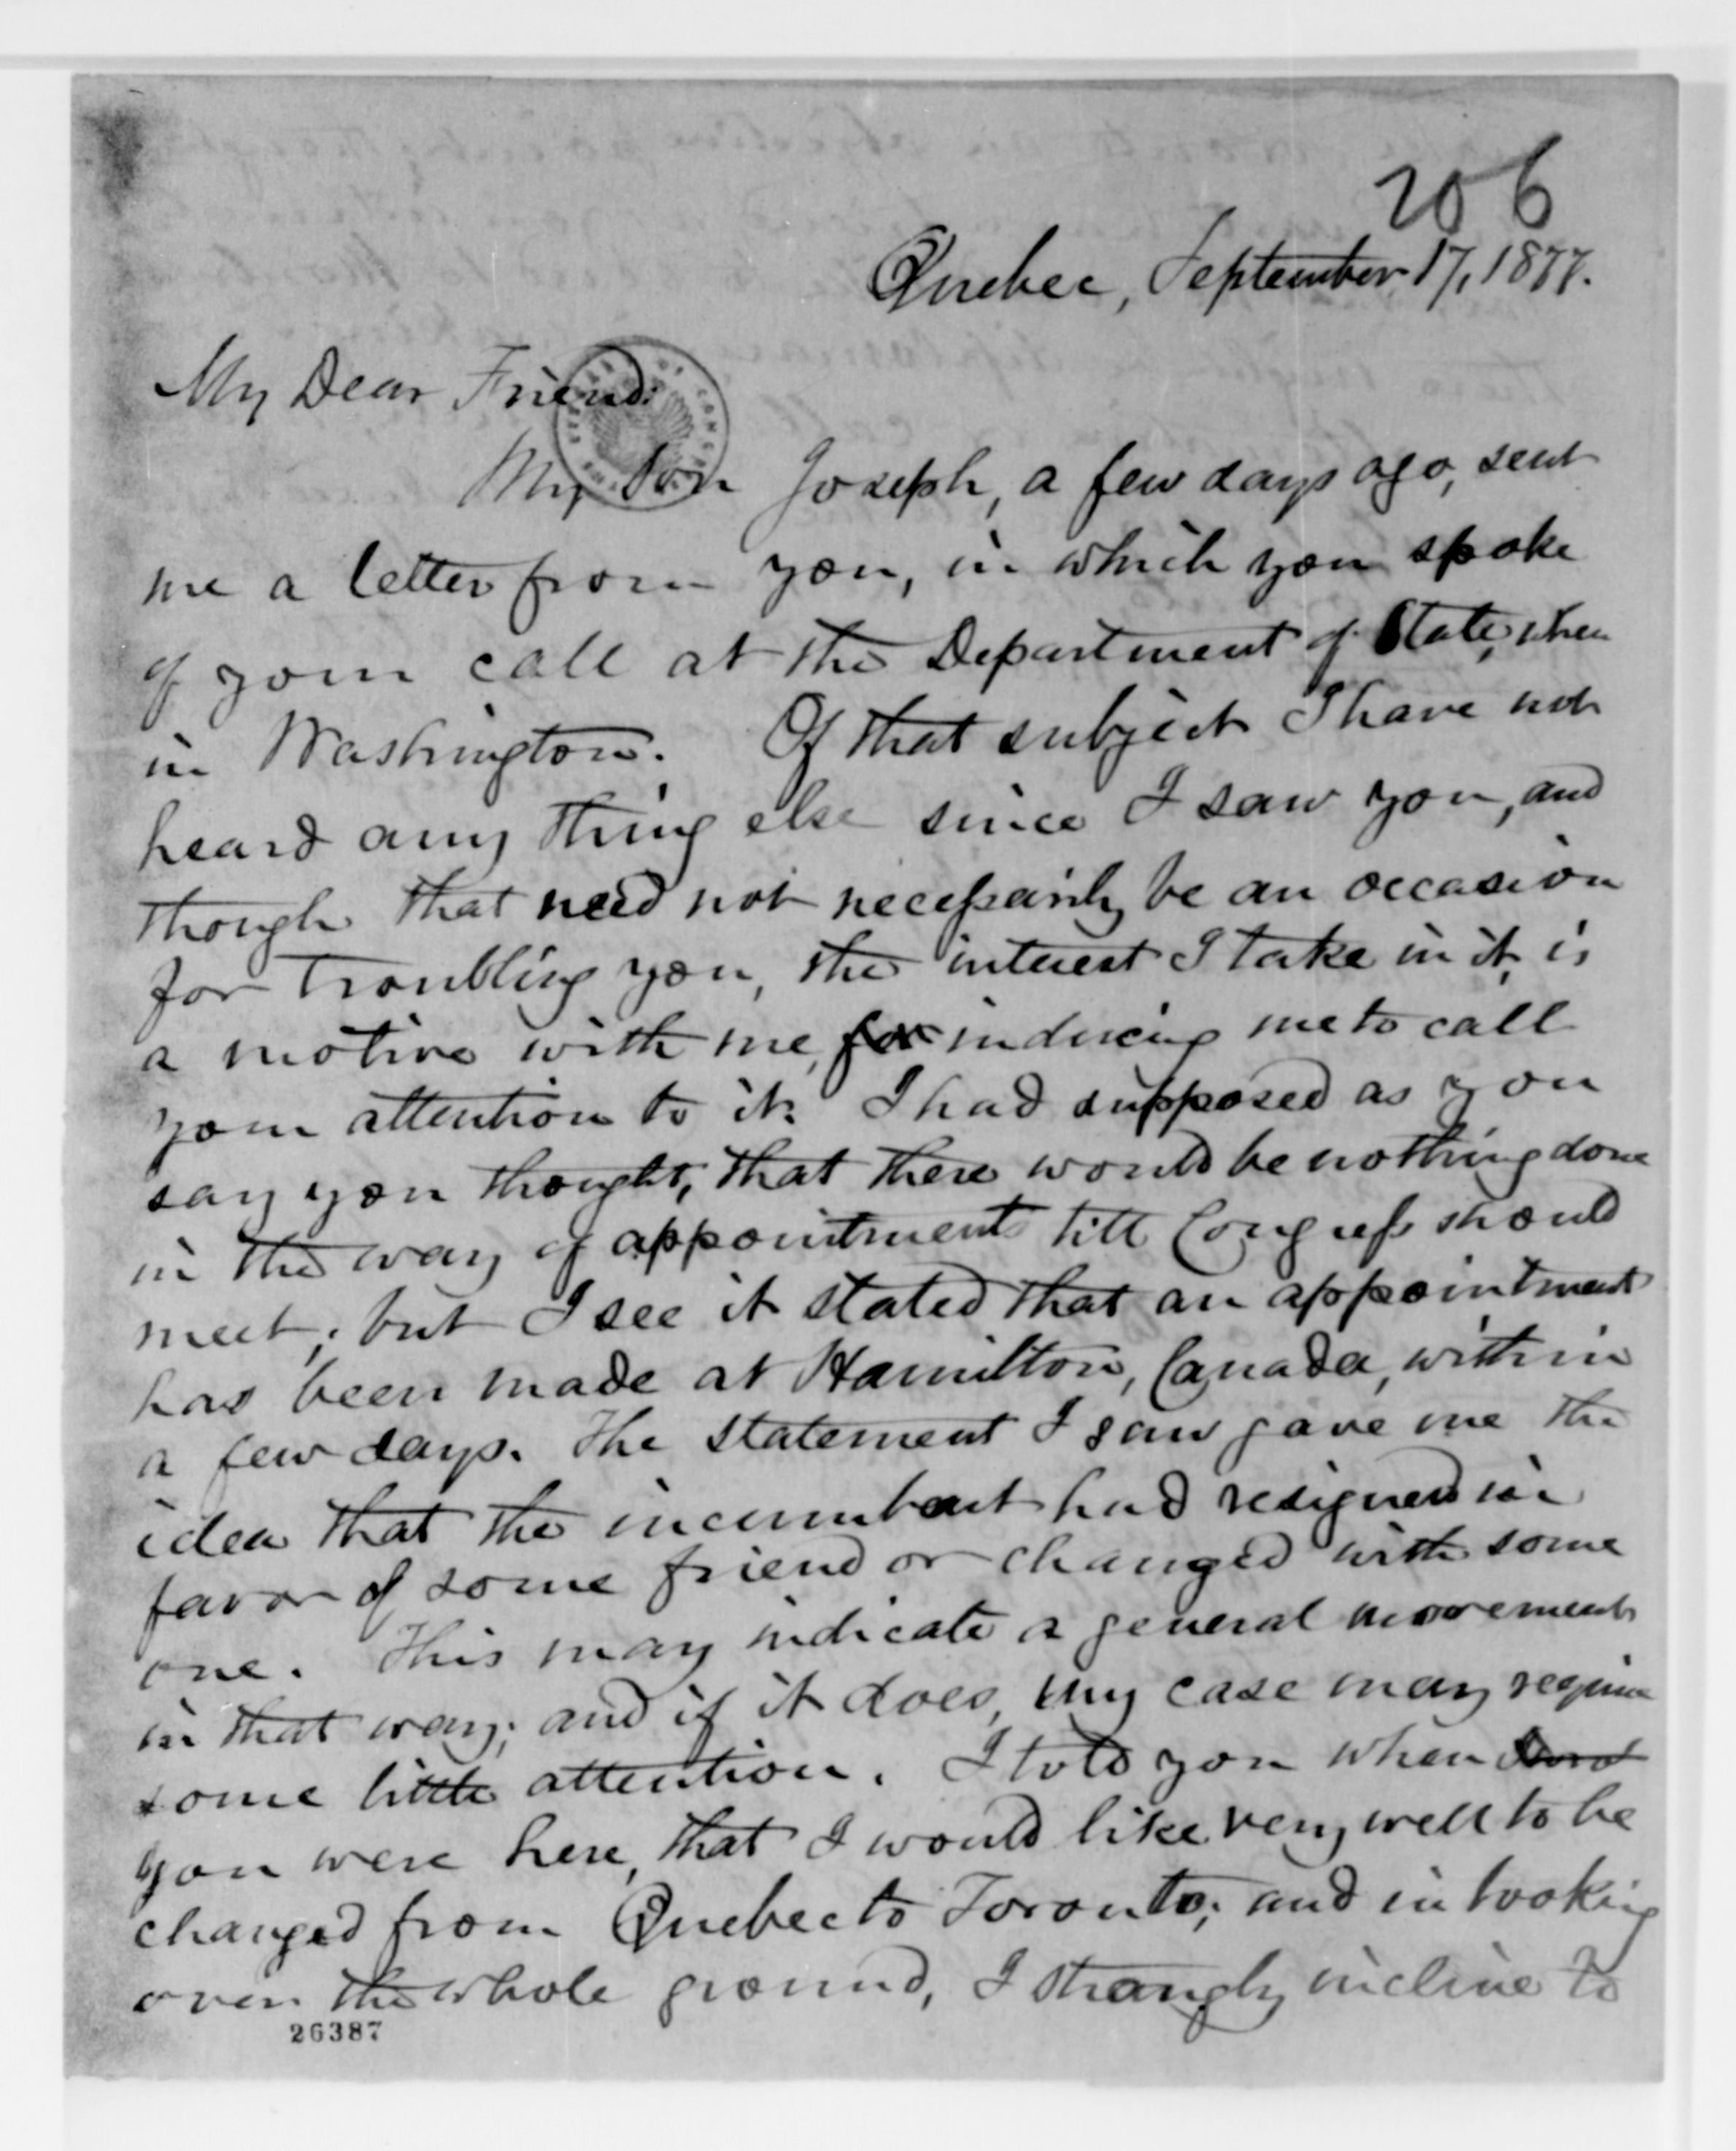 206
Quebec, September 17, 1877.
My Dear Friend:
My Son Joseph, a few days ago, sent
me a letter from you, in which you spoke
of your call at the Department of State, when
in Washington. Of that subject I have not
heard any thing else since I saw you, and
though that need not necessarily be an occasion
for troubling you, the interest I take in it, is
a motive with me, for inducing me to call
your attention to it. I had supposed as you
say you thought, that there would be nothing done
in the way of appointments till Congress should
meet; but I see it stated that an appointment
has been made at Hamilton, Canada, within
a few days. The statement I saw gave me the
idea that the incumbent had resigned in
favor of some friend or changed with some
one. This may indicate a general movement
in that way; and if it does, my case may require
some little attention. I told you when
you were here, that I would like very well to be
changed from Quebec to Toronto; and in looking
over the whole ground, I strongly incline to
26387